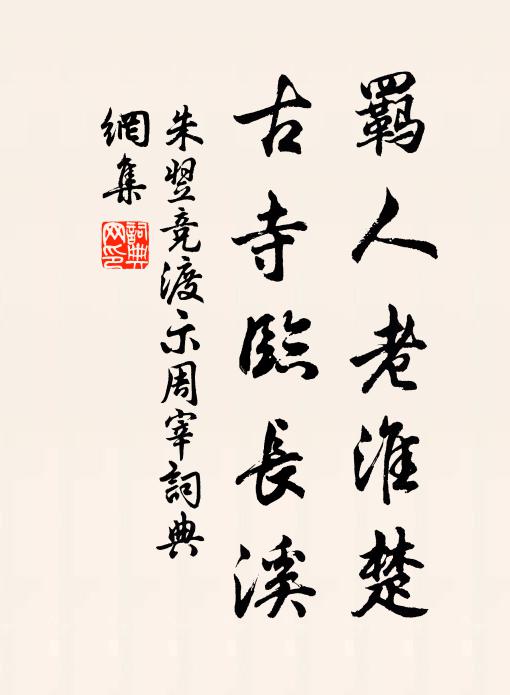 羈人老淮楚
古寺臨長溪
朱翌竞渡示周宰詞典
網集
詞典網印